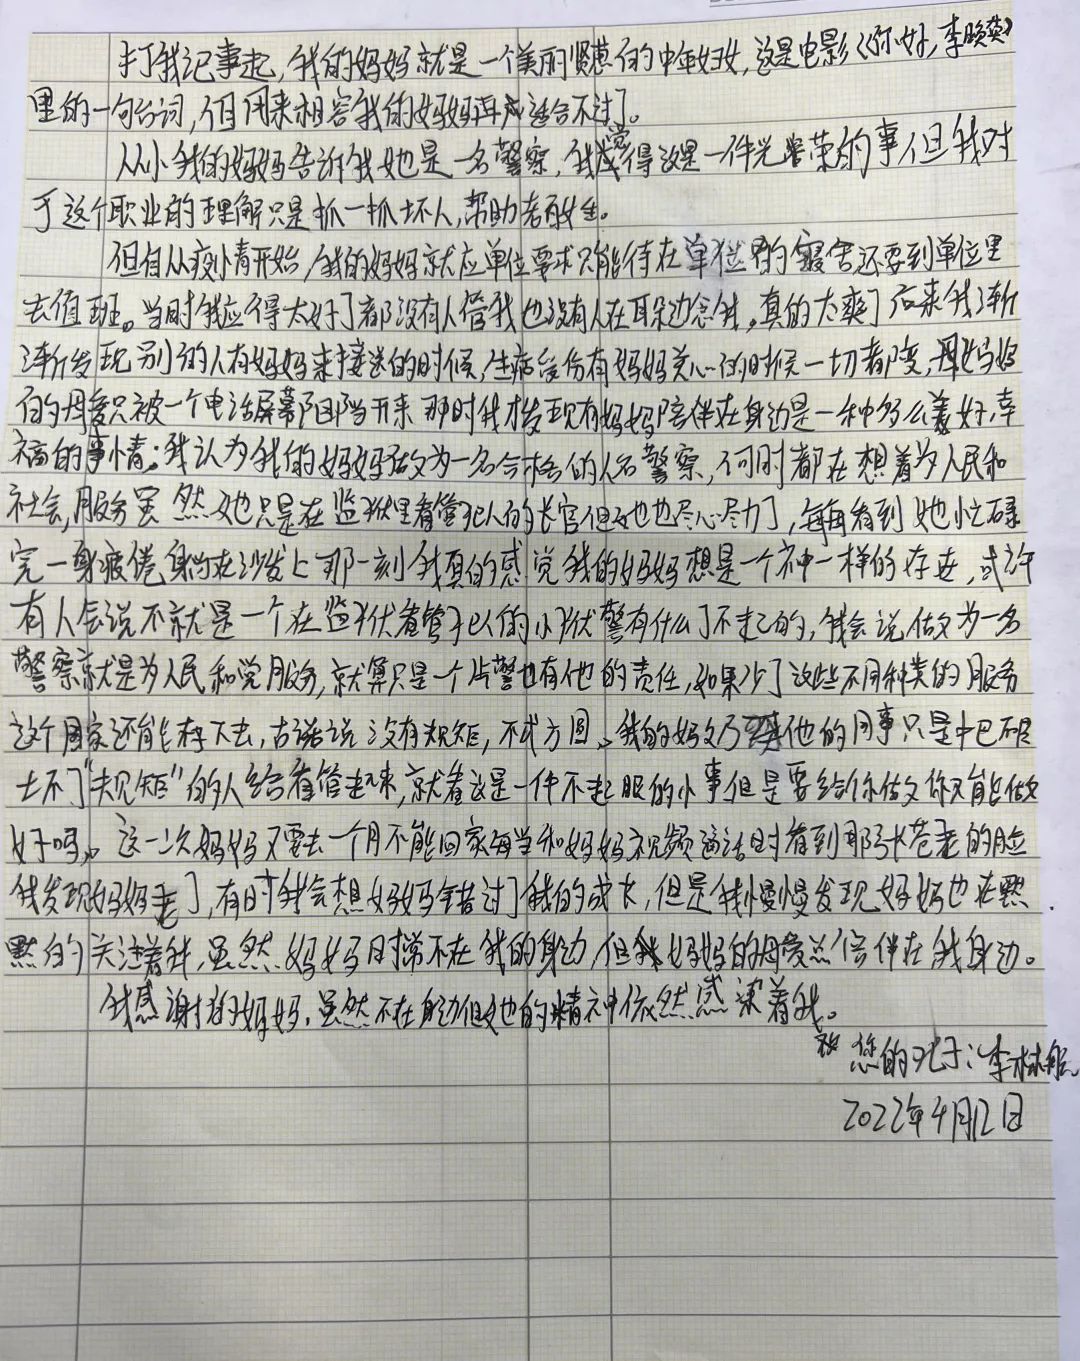 打我记事起,我的妈妈就是一个美丽贤惠的中年妇女,这是电影《你好,李焕英》
里的一句台词,但用来相容我的妈妈再成适合不过了。
从小我的妈妈告诉我她是一名警察,我觉得这是一件光荣的事但我对
于这个职业的理解只是抓一抓坏人,帮助老百姓。
但自从疫情开始,我的妈妈就应单位要求只能待在单位的寝舍还要到单位里
去值班。当时我应得太好了都没有人管我也没有人在耳朵边念我,真的太爽了后来我渐
渐发现别的人有妈妈来接送的时候,生病受伤有妈妈关心的时候一切都变,妈妈
的母爱只被一个电话屏幕阻挡开来 那时我才发现有妈妈陪伴在身边是一种多么美好,幸
福的事情;我认为我的妈妈做为一名合格的人名警察,何时都在想着为人民和
社会,服务虽然她只是在监狱里看管犯人的长官但她也尽心尽力了,每每看到她忙碌
完一身疲倦躺在沙发上那一刻我真的感觉我的妈妈想是一个神一样的存在,或许
有人会说不就是一个在监狱看管犯人的小狱警有什么了不起的,我会说做为一名
警察就是为人民和党服务,就算只是一个片警也有他的责任,如果少了这些不同种类的服务
这个国家还能存下去,古话说没有规矩,不成方圆。我的妈妈乃至他的同事只是把
不了“规矩”的人给看管起来,就看这是一件不起眼的小事但是要给你做你又能做
好吗。这一次妈妈又要去一个月不能回家每当和妈妈视频通话时看到那张苍老的脸
我发现妈妈老了,有时我会想妈妈错过了我的成长,但是我慢慢发现妈妈也在默
默的关注着我,虽然妈妈时常不在我的身边,但妈妈的母爱总陪伴在我身边。
我感谢我的妈妈,虽然不在身边但她的精神依然感染着我。
您的儿子:李林航
2022年4月12日